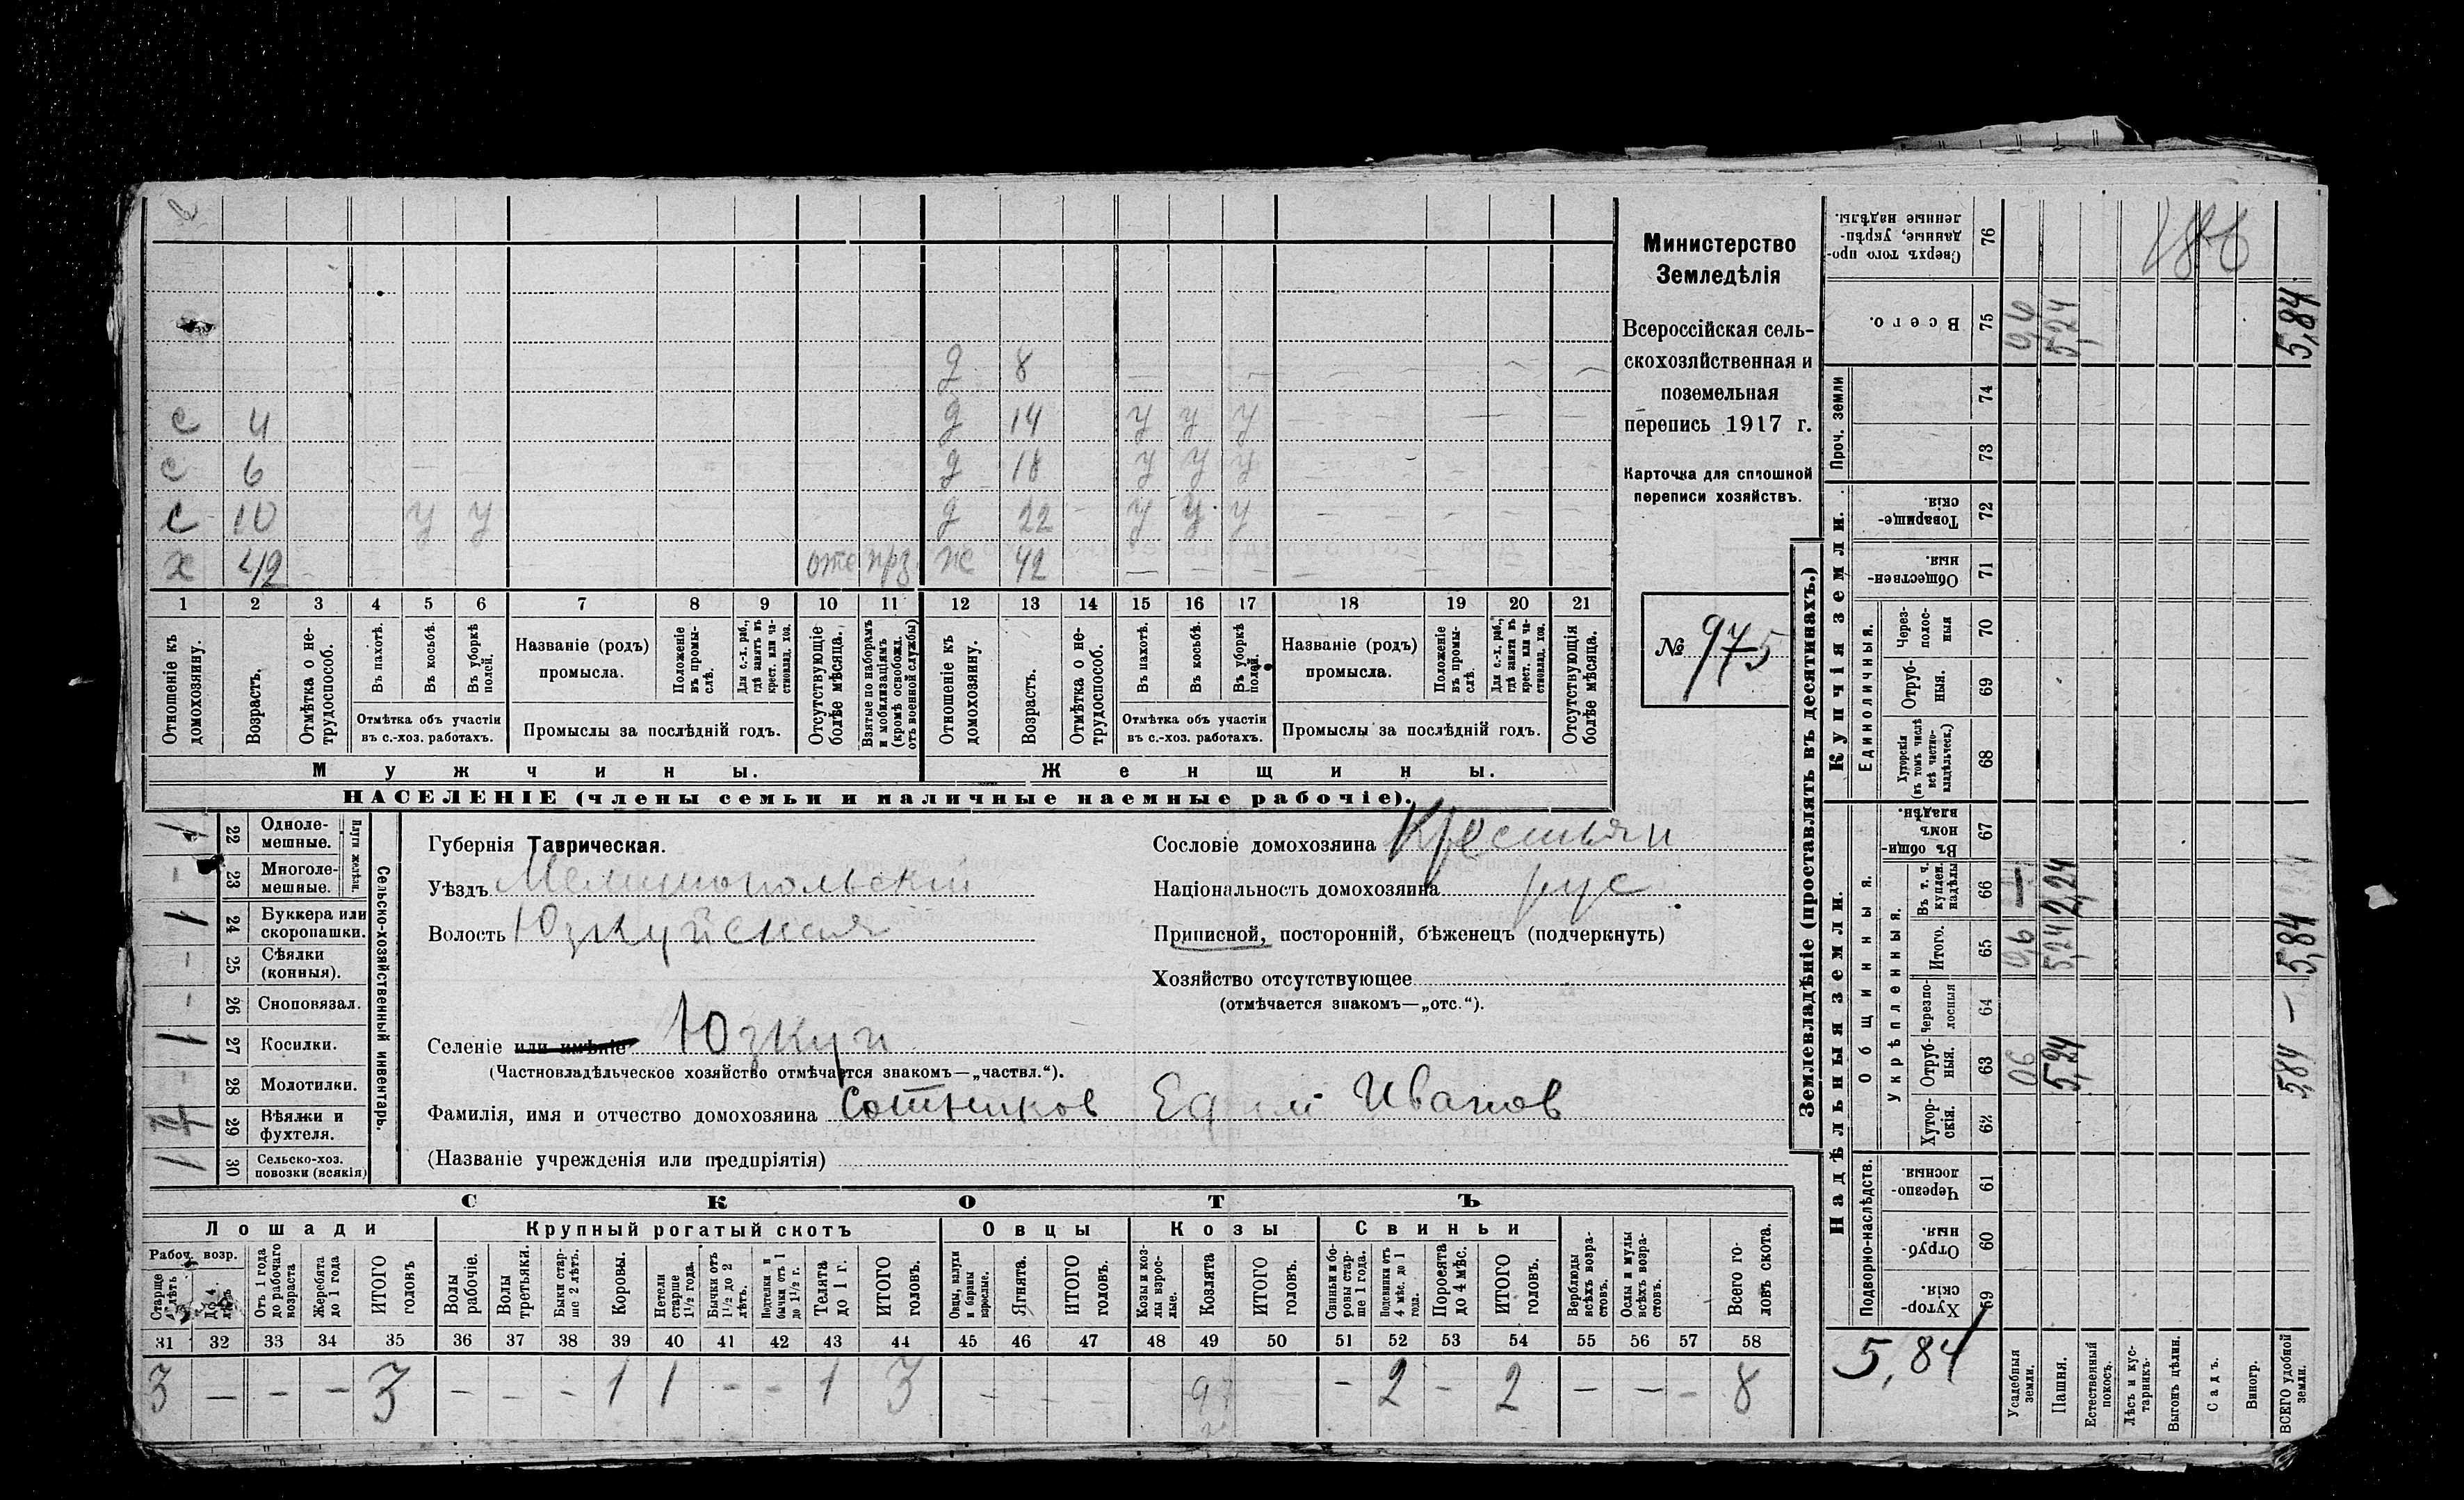 с 4
с 6
с 10 у у
х 42 отс прз.
д 8
д 14 у у у
д 18 у у у
д 22 у у у
ж 42
1 2 3 4 5 6 7 8 9 10 11 12 13 14 15 16 17 18 19 20 21
Отношеніе къ домохозяину.
Возрастъ.
Отмѣтка о не-
трудоспособ.
Въ пахотѣ.
Въ косьбѣ.
Въ уборкѣ полей.
Отмѣтка объ участіи
въ с.-хоз. работахъ.
Названіе (родъ)
промысла.
Положеніе въ промы-
слѣ.
Для с.-х. раб., гдѣ занятъ въ крест. или ча-
стновлад. хоз.
Промыслы за послѣдній годъ.
Отсутствующіе болѣе мѣсяца.
Взятые по наборамъ и мобилизаціямъ (кромѣ освобожд. отъ военной службы)
Отношеніе къ домохозяину.
Возрастъ.
Отмѣтка о не-
трудоспособ.
Въ пахотѣ.
Въ косьбѣ.
Въ уборкѣ полей.
Отмѣтка объ участіи
въ с.-хоз. работахъ.
Названіе (родъ)
промысла.
Положеніе въ промы-
слѣ.
Для с.-х. раб., гдѣ занята въ крест. или ча-
стновлад. хоз.
Промыслы за послѣдній годъ.
Отсутствующія болѣе мѣсяца.
Мужчины.
Женщины.
НАСЕЛЕНІЕ (члены семьи и наличные наемные рабочіе).
Министерство
Земледѣлія
Всероссійская сель-
скохозяйственная и
поземельная
перепись 1917 г.
Карточка для сплошной
переписи хозяйствъ.
№ 975
1 22 Одноле-
мешные.
- 23 Многоле-
мешные.
Плуги желѣзн.
1 24 Буккера или
скоропашки.
- 25 Сѣялки
(конныя).
- 26 Сноповязал.
1 27 Косилки.
- 28 Молотилки.
29 Вѣялки и
фухтеля.
1 30 Сельско-хоз.
повозки (всякія)
Сельско-хозяйственный инвентарь.
Губернія Таврическая.
Уѣздъ Мелитопольскій
Волость Юзкуйская
Селеніе или имѣніе Юзкуи
(Частновладѣльческое хозяйство отмѣчается знакомъ—„частвл.“).
Фамилія, имя и отчество домохозяина Сотников Иванов
(Названіе учрежденія или предпріятія)
Сословіе домохозяина Крестьян
Національность домохозяина рус
Приписной, посторонній, бѣженецъ (подчеркнуть)
Хозяйство отсутствующее
(отмѣчается знакомъ—„отс.“).
СКОТЪ
Лошади
Крупный рогатый скотъ
Овцы
Козы
Свиньи
Рабоч. возр.
Старше 4 лѣтъ
До 4 лѣтъ
Отъ 1 года до рабочаго возраста
Жеребята до 1 года
ИТОГО головъ
Волы рабочіе.
Волы третьяки.
Быки стар-
ше 2 лѣтъ.
Коровы.
Нетели старше 1½ года.
Бычки отъ 1½ до 2 лѣтъ.
Подтелки и бычки отъ 1 до 1½ г.
Телята до 1 г.
ИТОГО головъ.
Овцы, валухи и бараны взрослые.
Ягнята.
ИТОГО головъ.
Козы и коз-
лы взрос-
лые.
Козлята
ИТОГО головъ.
Свиньи и бо-
ровы стар-
ше 1 года.
Подсвинки отъ 4 мѣс. до 1 года.
Поросята до 4 мѣс.
ИТОГО головъ.
Верблюды всѣхъ возра-
стовъ.
Ослы и мулы всѣхъ возра-
стовъ.
Всего го-
ловъ скота.
31 32 33 34 35 36 37 38 39 40 41 42 43 44 45 46 47 48 49 50 51 52 53 54 55 56 57 58
3 – – – 3 – – – 1 1 – – 1 3 – – – 97 – 2 – 2 – – – 8
Землевладѣніе (проставлять въ десятинахъ.)
Надѣльныя земли.
Купчія земли.
Проч. земли
Подворно-наслѣдств.
Общинныя.
Укрѣпленныя.
Единоличныя.
Сверхъ того про-
данные, укрѣп-
ленные надѣлы.
76
Всего.
75 5,24 5,84
74
73
Товарище-
скія.
72
Обществен-
ныя.
71
Через-
полос-
ныя
70
Отруб-
ныя.
69
Хуторскія (въ томъ числѣ всѣ частно-
владѣльческ.)
68
Въ общин-
номъ владѣн.
67
Въ т. ч. куплен. надѣлы
66 – 2,24
Итого.
65 0,6 5,24 5,84
Черезпо-
лосныя
64 –
Отруб-
ныя.
63 06 5,24 5,84
Хутор-
скія.
62
Черезпо-
лосныя
61
Отруб-
ныя.
60
Хутор-
скія.
59
5,84
Усадебныя земли.
Пашня.
Естественный покосъ.
Лѣсъ и кус-
тарникъ.
Выгонъ цѣлин.
Садъ.
Виногр.
ВСЕГО удобной земли.